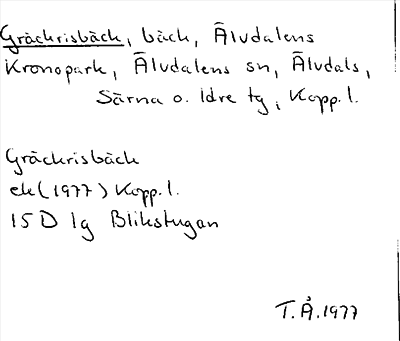 Gräckrisbäck, bäck, Älvdalens
Kronopark, Älvdalens sn, Älvdals,
Särna o. Idre tg, Kopp. l.
Gräckrisbäck
ek (1977) Kopp. l.
15 D 1g Blikstugan
T. Å. 1977